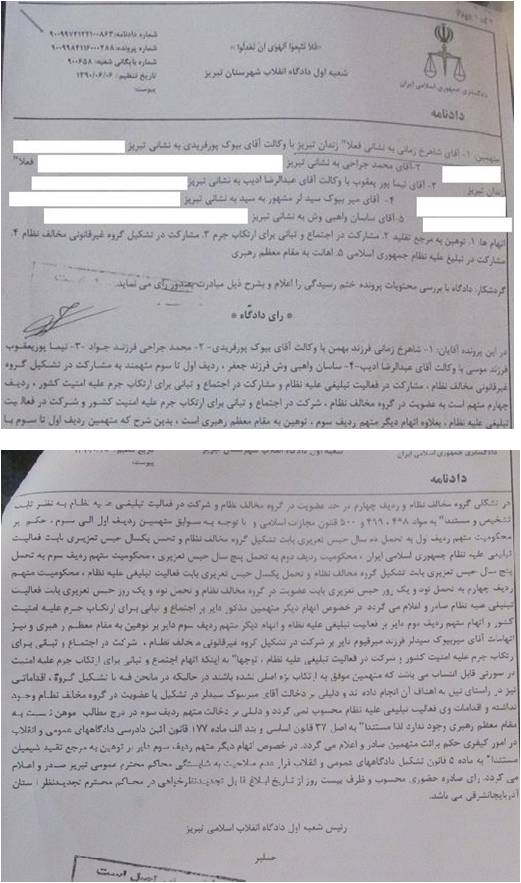 Page 1 of 2
شماره دادنامه: ۹۰۰۹۹۷۴۱۲۲۱۰۰۸۶۳
شماره پرونده: ۹۰۰۹۹۸۴۱۱۶۰۰۰۲۸۸
شماره بایگانی شعبه: ۹۰۰۶۵۸
تاریخ تنظیم: ۱۳۹۰/۰۶/۰۶
پیوست:
«فلا تتبعوا الهوی ان تعدلوا»
شعبه اول دادگاه انقلاب شهرستان تبریز
دادگستری جمهوری اسلامی ایران
دادنامه
متهمین: ۱- آقای شاهرخ زمانی به نشانی فعلا" زندان تبریز با وکالت آقای بیوک پورفریدی به نشانی تبریز
۲-آقای محمد جراحی به نشانی تبریز فعلا"
زندان تبریز ۳- آقای نیما پور یعقوب با وکالت آقای عبدالرضا ادیب به نشانی تبریز
۴- آقای میر بیوک سید لر مشهور به سید به نشانی تبریز
۵-آقای ساسان واهبی وش به نشانی تبریز
اتهام ها: ۱. توهین به مرجع تقلید ۲. مشارکت در اجتماع و تبانی برای ارتکاب جرم ۳. مشارکت در تشکیل گروه غیرقانونی مخالف نظام ۴.
مشارکت در تبلیغ علیه نظام جمهوری اسلامی ۵. اهانت به مقام معظم رهبری
گردشکار: دادگاه با بررسی محتویات پرونده ختم رسیدگی را اعلام و بشرح ذیل مبادرت بصدور رای می نماید.
* رای دادگاه *
در این پرونده آقایان: ۱- شاهرخ زمانی فرزند بهمن با وکالت آقای بیوک پورفریدی- ۲- محمد جراحی فرزند جواد -۳- نیما پوریعقوب
فرزند موسی با وکالت آقای عبدالرضا ادیب-۴- ساسان واهبی وش فرزند جعفر ، ردیف اول تا سوم متهمند به مشارکت در تشکیل گروه
غیرقانونی مخالف نظام ، مشارکت در فعالیت تبلیغی علیه نظام و مشارکت در اجتماع و تبانی برای ارتکاب جرم علیه امنیت کشور ، ردیف
چهارم متهم است به عضویت در گروه مخالف نظام ، شرکت در اجتماع و تبانی برای ارتکاب جرم علیه امنیت کشور و شرکت در فعالیت
تبلیغی علیه نظام ، بعلاوه اتهام دیگر متهم ردیف سوم ، توهین به مقام معظم رهبری است ، بدین شرح که متهمین ردیف اول تا سوم با
شعبه اول دادگاه انقلاب شهرستان تبریز
دادگستری جمهوری اسلامی ایران
پیوست:
دادنامه
در تشکلی گروه مخالف نظام و ردیف چهارم در حد عضویت در گروه مخالف نظام و شرکت در فعالیت تبلیغی علیه نظام به نظر ثابت
تشخیص و مستندا" به مواد ۴۹۸ ، ۴۹۹ و ۵۰۰ قانون مجازات اسلامی و با توجه به سوابق متهمین ردیف اول الی سوم ، حکم بر
محکومیت متهم ردیف اول به تحمل ده سال حبس تعزیری بابت تشکیل گروه مخالف نظام و تحمل یکسال حبس تعزیری بابت فعالیت
تبلیغی علیه نظام جمهوری اسلامی ایران ، محکومیت ردیف دوم به تحمل پنج سال حبس تعزیری ، محکومیت متهم ردیف سوم به تحمل
پنج سال حبس تعزیری بابت تشکیل گروه مخالف نظام و تحمل یکسال حبس تعزیری بابت فعالیت تبلیغی علیه نظام ، محکومیت متهم
ردیف چهارم به تحمل نود و یک روز حبس تعزیری بابت عضویت در گروه مخالف نظام و تحمل نود و یک روز حبس تعزیری بابت فعالیت
تبلیغی علیه نظام صادر و اعلام می گردد در خصوص اتهام دیگر متهمین مذکور دایر بر اجتماع و تبانی برای ارتکاب جرم علیه امنیت
کشور و اتهام متهم ردیف دوم دایر بر فعالیت تبلیغی علیه نظام و اتهام دیگر متهم ردیف سوم دایر بر توهین به مقام معظم رهبری و نیز
اتهامات آقای میربیوک سیدلر فرزند میرقیوم دایر بر شرکت در تشکیل گروه غیرقانونی مخالف نظام ، شرکت در اجتماع و تبانی برای
ارتکاب جرم علیه امنیت کشور و شرکت در فعالیت تبلیغی علیه نظام ، توجها" به اینکه اتهام اجتماع و تبانی برای ارتکاب جرم علیه امنیت
در صورتی قابل انتساب می باشد که متهمین موفق به ارتکاب بزه اصلی نشده باشند در حالیکه در مانحن فیه با تشکیل گروه ، اقداماتی
نیز در راستای نیل به اهداف آن انجام داده اند و دلیلی بر دخالت آقای میربیوک سیدلر در تشکیل یا عضویت در گروه مخالف نظام وجود
نداشته و اقدامات وی فعالیت تبلیغی علیه نظام محسوب نمی گردد و دلیلی بر دخالت متهم ردیف سوم در درج مطالب موهن نسبت به
مقام معظم رهبری وجود ندارد لذا مستندا" به اصل ۳۷ قانون اساسی و بند الف ماده ۱۷۷ قانون آئین دادرسی دادگاههای عمومی و انقلاب
در امور کیفری حکم برائت متهمین صادر و اعلام می گردد. در خصوص اتهام دیگر متهم ردیف سوم دایر بر توهین به مرجع تقلید شیعیان
مستندا" به ماده ۵ قانون تشکیل دادگاههای عمومی و انقلاب قرار عدم صلاحیت به شایستگی محاکم محترم عمومی تبریز صادر و اعلام
می گردد. رای صادره حضوری محسوب و ظرف بیست روز از تاریخ ابلاغ قابل تجدیدنظرخواهی در محاکم محترم تجدیدنظر استان
آذربایجانشرقی می باشد.
رئیس شعبه اول دادگاه انقلاب اسلامی تبریز
حملبر
اصل است